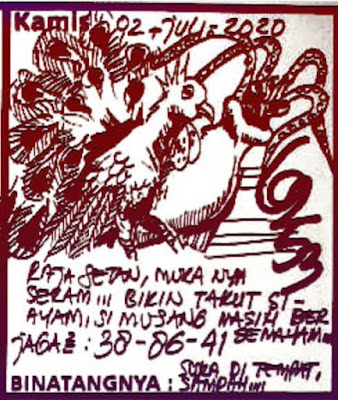 Kamis 02-JULI-2020
RAJA SETAN, MUKA NYA
SERAM !!! BIKIN TAKUT SI-
AYAM, SI MUSANG MASIH BER
JAGA2 : 38-86-41 SEMALAM...
BINATANGNYA : SUKA DI TEMPAT,
SAMPAH !!!